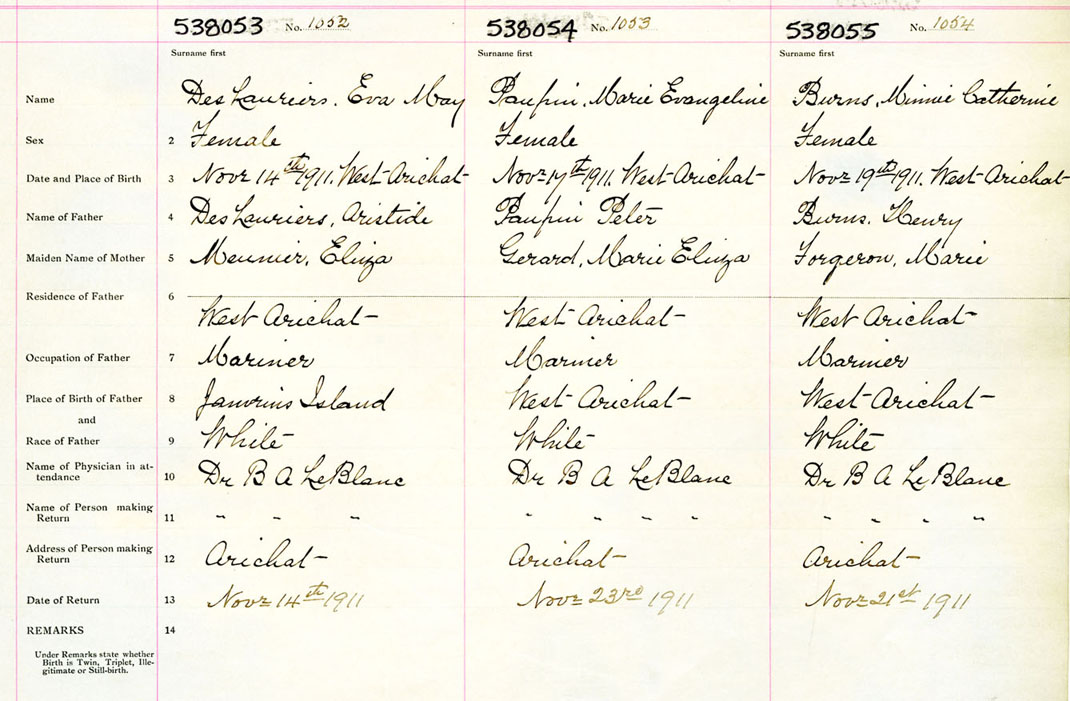 538053 No. 1052 538054 No. 1053 538055 No. 1054
Surname first Surname first Surname first
Name DesLauriers. Eva May Paupin, Marie Evangeline Burns, Minnie Catherine
Sex 2 Female Female Female
Date and Place of Birth 3 Novr 14th 1911. West Arichat Novr 17th 1911. West Arichat Novr 19th 1911. West Arichat
Name of Father 4 DesLauriers, Aristide Paupin Peter Burns. Henry
Maiden Name of Mother 5 Meunier, Eliza Gerard, Marie Eliza Forgeron, Marie
Residence of Father 6
West Arichat West Arichat West Arichat
Occupation of Father 7 Mariner Mariner Mariner
Place of Birth of Father 8 Janvrins Island West Arichat West Arichat
and
Race of Father 9 White White White
Name of Physician in at-
tendance 10 Dr B A LeBlanc Dr B A LeBlanc Dr B A LeBlanc
Name of Person making
Return 11 " " " " " " " " " " "
Address of Person making
Return 12 Arichat Arichat Arichat
Date of Return 13 Novr 14th 1911 Novr 23rd 1911 Novr 21st 1911
REMARKS 14
Under Remarks state whether
Birth is Twin, Triplet, Ille-
gitimate or Still-birth.